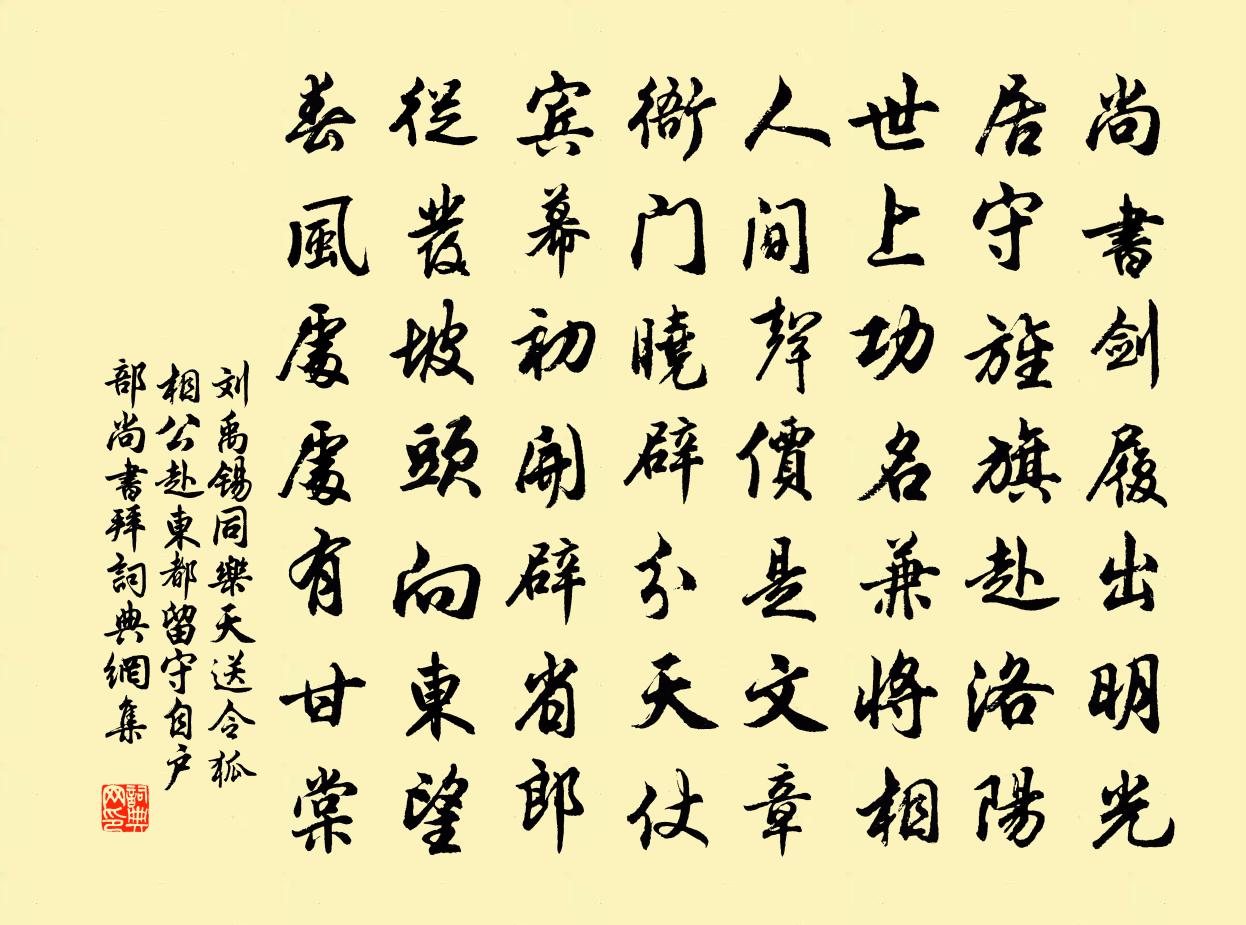 尚書劍履出明光
居守旌旗赴洛陽
世上功名兼將相
人間聲價是文章
衙門曉辟分天仗
賓幕初開辟省郎
從發坡頭向東望
春風處處有甘棠
刘禹锡同樂天送令狐
相公赴東都留守自户
部尚書拜詞典網集
詞典网印